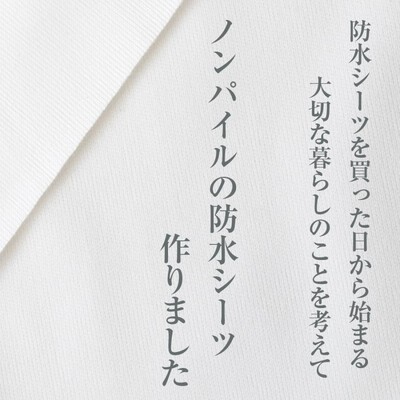 防水シーツを買った日から始まる
大切な暮らしのことを考えて
ノンパイルの防水シーツ
作りました